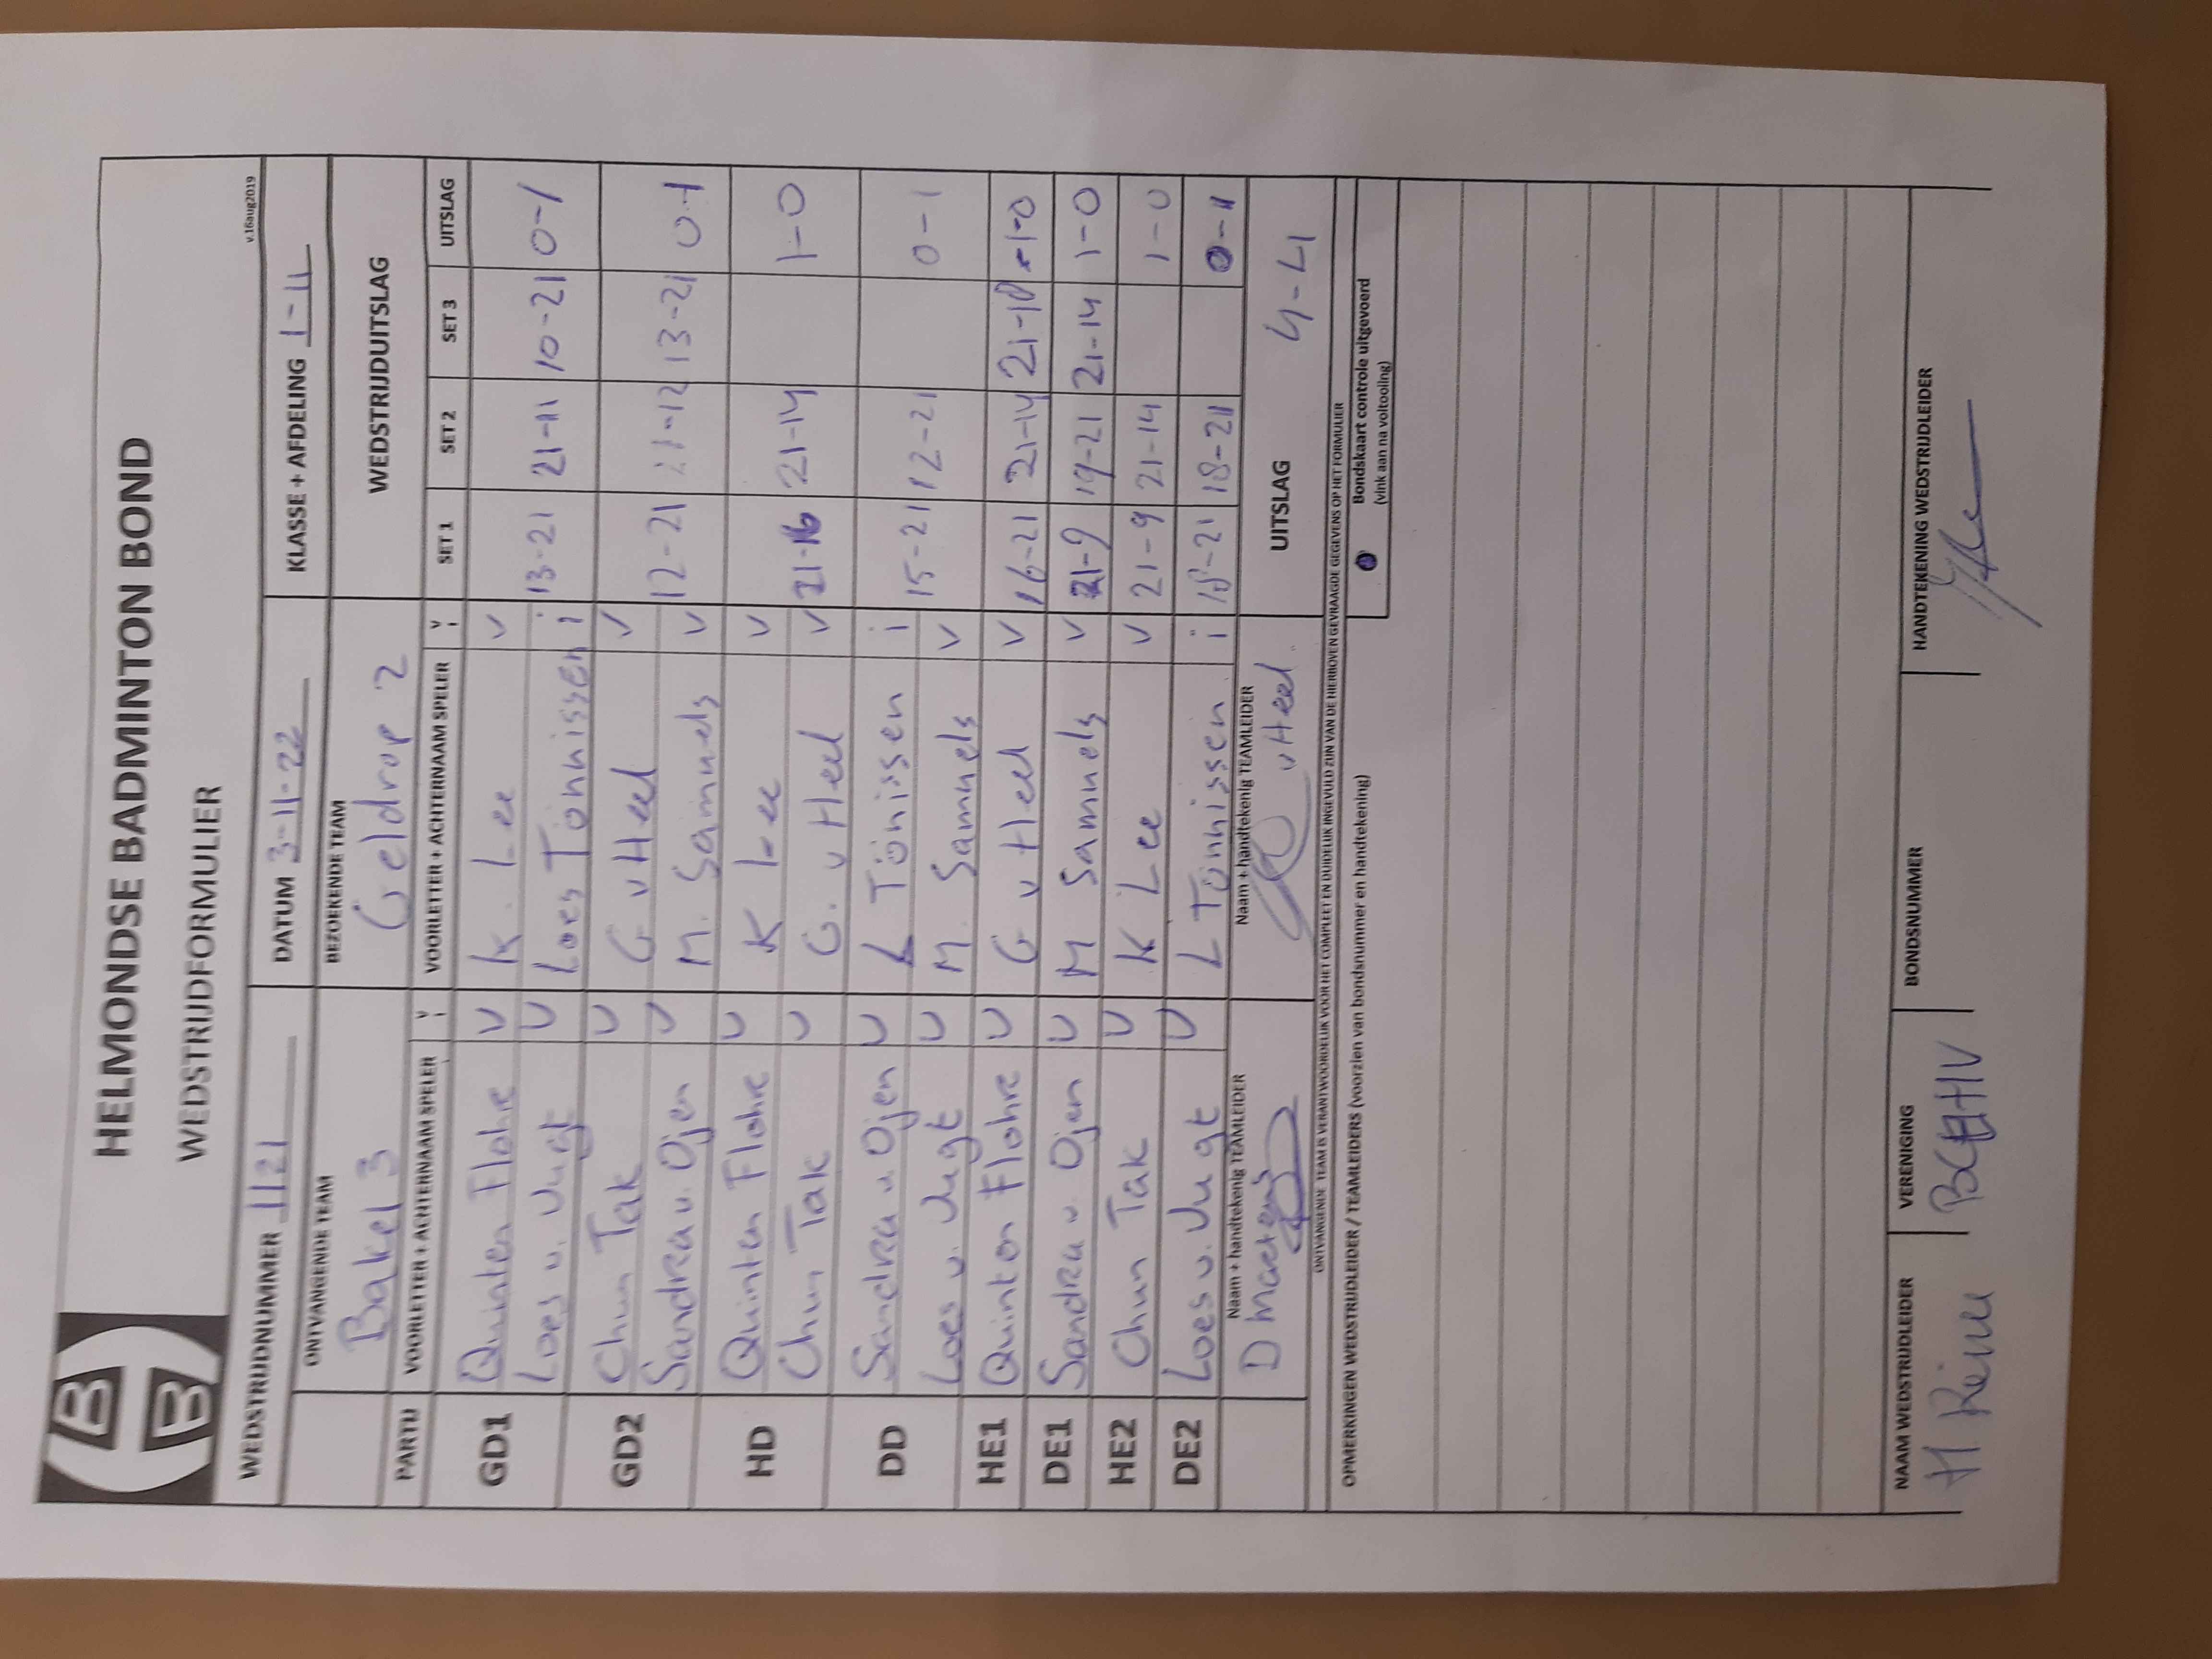 HELMONDSE BADMINTON BOND
WEDSTRIJDFORMULIER
v.16aug2019
WEDSTRIJDNUMMER 1121 DATUM 3-11-22 KLASSE + AFDELING 1-11
ONTVANGENDE TEAM BEZOEKENDE TEAM WEDSTRIJDUITSLAG
Bakel 3 Geldrop 2
PARTIJ VOORLETTER + ACHTERNAAM SPELER V i VOORLETTER + ACHTERNAAM SPELER V i SET 1 SET 2 SET 3 UITSLAG
GD1 Quinten Flohre V K. Lee V
Loes v. Vugt V Loes Tönnissen i 13-21 21-11 10-21 0-1
GD2 Chun Tak V G vHeel V
Sandra v. Ojen V M. Samuels V 12-21 21-12 13-21 0-1
HD Quinten Flohre V K Lee V
Chun Tak V G. vHeel V 21-16 21-14 1-0
DD Sandra v. Ojen V L Tönissen i
Loes v. Vugt V M. Samuels V 15-21 12-21 0-1
HE1 Quinten Flohre V G vHeel V 16-21 21-14 21-10 1-0
DE1 Sandra v. Ojen V M Samuels V 21-9 19-21 21-14 1-0
HE2 Chun Tak V K Lee V 21-9 21-14 1-0
DE2 Loes v. Vugt V L Tönnissen i 18-21 18-21 0-1
Naam + handtekenig TEAMLEIDER Naam + handtekenig TEAMLEIDER UITSLAG 4-4
D Maetens vHeel
ONTVANGENDE TEAM IS VERANTWOORDELIJK VOOR HET COMPLEET EN DUIDELIJK INGEVULD ZIJN VAN DE HIERBOVEN GEVRAAGDE GEGEVENS OP HET FORMULIER
OPMERKINGEN WEDSTRIJDLEIDER / TEAMLEIDERS (voorzien van bondsnummer en handtekening) Bondskaart controle uitgevoerd
(vink aan na voltooiing)
NAAM WEDSTRIJDLEIDER VERENIGING BONDSNUMMER HANDTEKENING WEDSTRIJDLEIDER